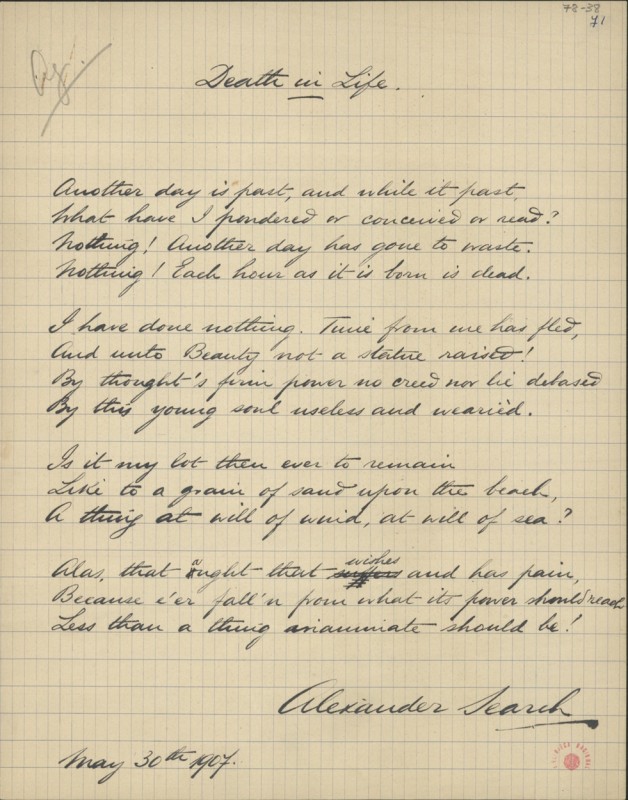 78-38
71
Death in Life.
Another day is past, and while it past,
What have I pondered or conceived or read?
Nothing! Another day has gone to waste.
Nothing! Each hour as it is born is dead.
I have done nothing. Time from me has fled,
And unto Beauty not a statue raised!
By thought's firm power no creed nor lie debased
By this young soul useless and weariëd.
Is it my lot then ever to remain
Like to a grain of sand upon the beach,
A thing at will of wind, at will of sea?
Alas, that aught that wishes and has pain,
Because e'er fall'n from what its power should reach
Less than a thing inanimate should be!
Alexander Search
May 30th 1907.